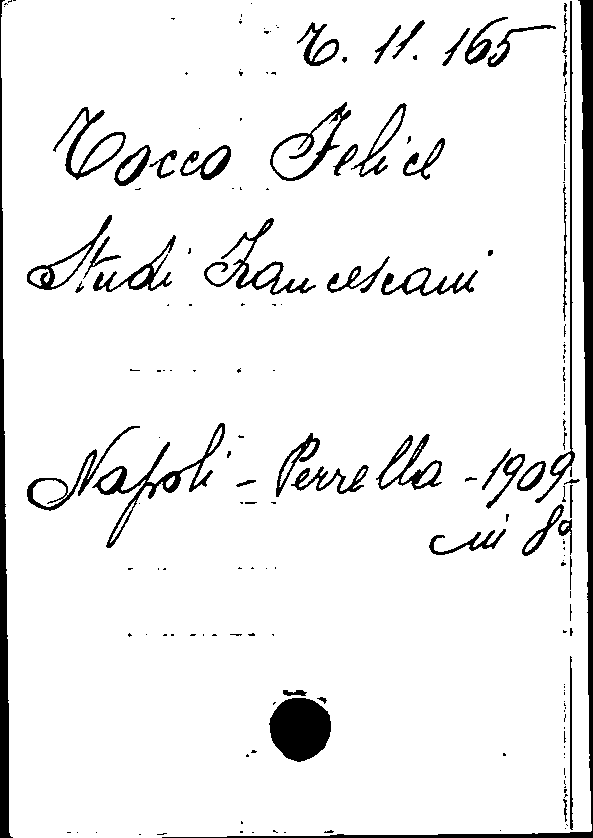 T. 11. 165
Tocco Felice
Studi Francescani
Napoli - Perrella - 1909
in 8°